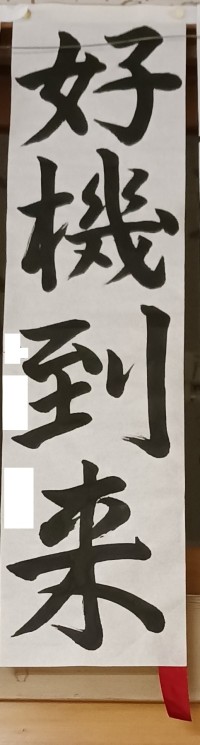 好機到来